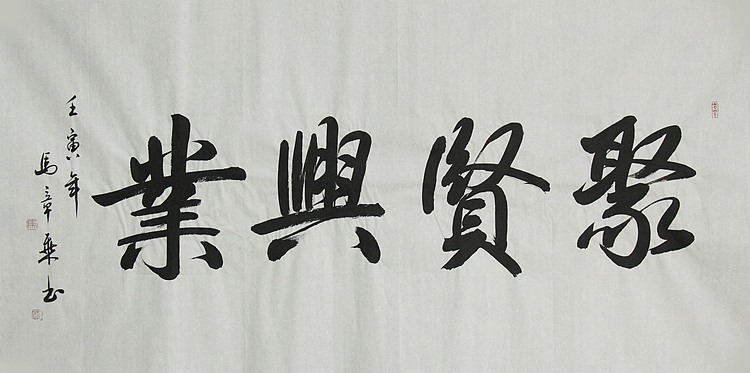 聚賢興業
壬寅年
馬章乘书